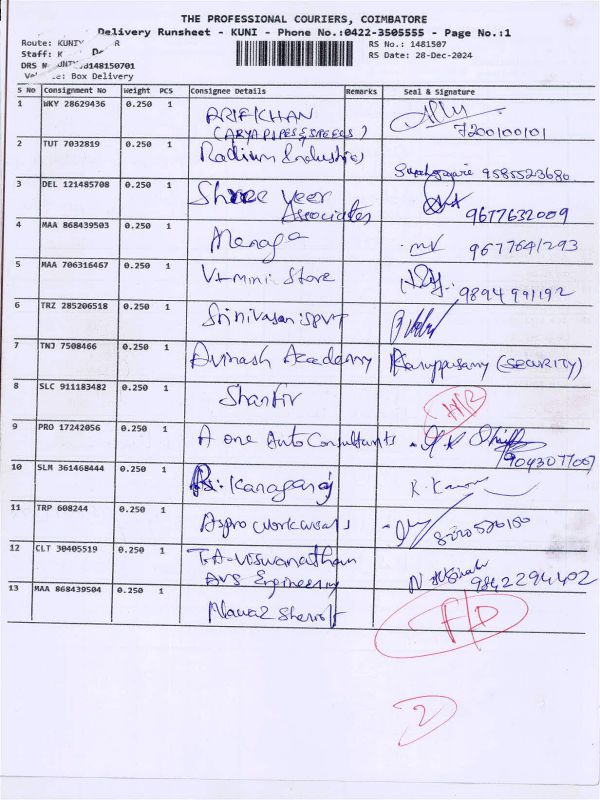 THE PROFESSIONAL COURIERS, COIMBATORE
Delivery Runsheet - KUNI - Phone No.:0422-3505555 - Page No.:1
Route: KUNIY
RS No.: 1481507
Staff: K
RS Date: 28-Dec-2024
DRS N
148150701
: Box Delivery
S No Consignment No Weight PCS Consignee Details Remarks Seal & Signature
1 WKY 28629436 0.250 1 ARIFKHAN
(ARYA PIPES & SPEEDS) 7200100101
2 TUT 7032819 0.250 1 Radium Industries
9585523680
3 DEL 121485708 0.250 1 Shree Veer
Associates 9677632009
4 MAA 868439503 0.250 1 Menaga 9677641293
5 MAA 706316467 0.250 1 V+mini Store 9894991192
6 TRZ 285206518 0.250 1 Srinivasan
7 TNJ 7508466 0.250 1 Avinash Academy Karuppusamy (SECURITY)
8 SLC 911183482 0.250 1
9 PRO 17242056 0.250 1 A one Auto Consultants
10 SLM 361468444 0.250 1 R. Kanagaraj
11 TRP 608244 0.250 1 Aspro workwears
12 CLT 30405519 0.250 1 T.A. Viswanathan
AVS Engineering 9842294402
13 MAA 868439504 0.250 1 Nawaz Sheriff F/D
2